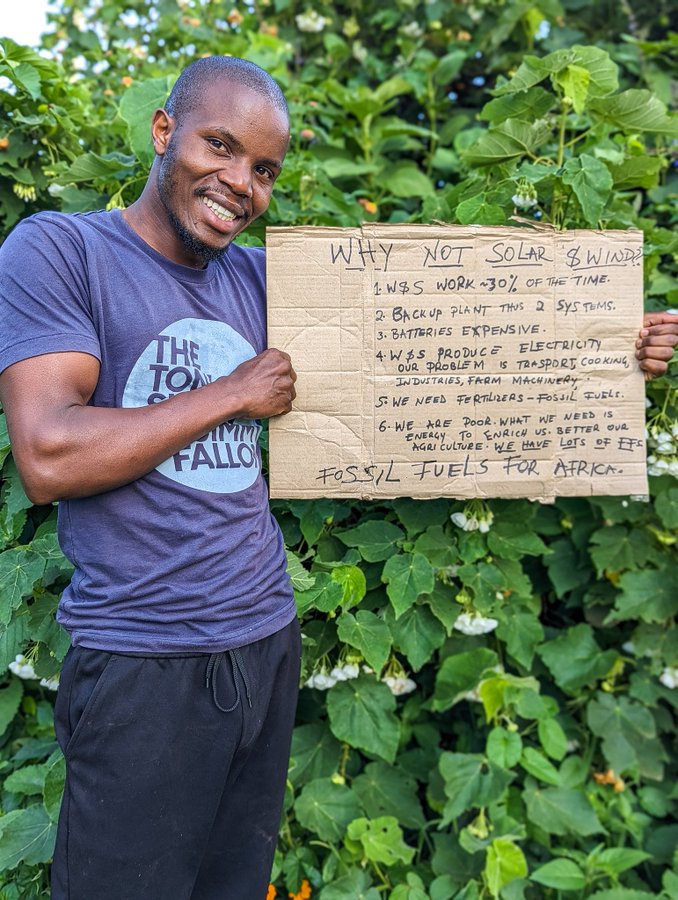 WHY NOT SOLAR & WIND?
1. W&S WORK ~30% OF THE TIME.
2. BACKUP PLANT THUS 2 SYSTEMS.
3. BATTERIES EXPENSIVE.
4. W&S PRODUCE ELECTRICITY
OUR PROBLEM IS TRASPORT, COOKING,
INDUSTRIES, FARM MACHINERY.
5. WE NEED FERTILIZERS - FOSSIL FUELS.
6. WE ARE POOR. WHAT WE NEED IS
ENERGY TO ENRICH US. BETTER OUR
AGRICULTURE. WE HAVE LOTS OF
FOSSIL FUELS FOR AFRICA.
THE